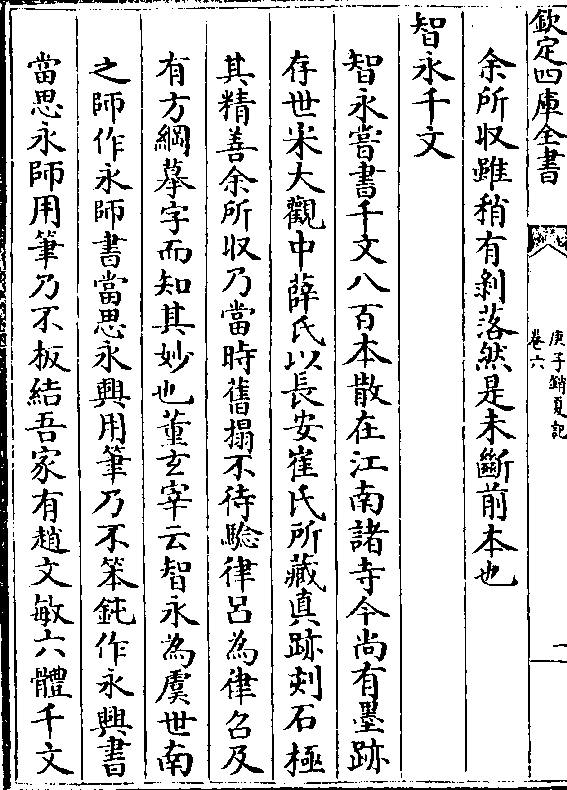 欽定四庫全書
庚子銷夏記
卷六
一
余所収雖稍有剝落然是未斷前本也
智永千文
智永嘗書千文八百本散在江南諸寺今尚有墨跡
存世宋大觀中薛氏以長安崔氏所藏真跡刻石極
其精善余所収乃當時舊搨不待驗律呂為律召及
有方綱摹字而知其妙也董玄宰云智永為虞世南
之師作永師書當思永興用筆乃不笨鈍作永興書
當思永師用筆乃不板結吾家有趙文敏六體千文